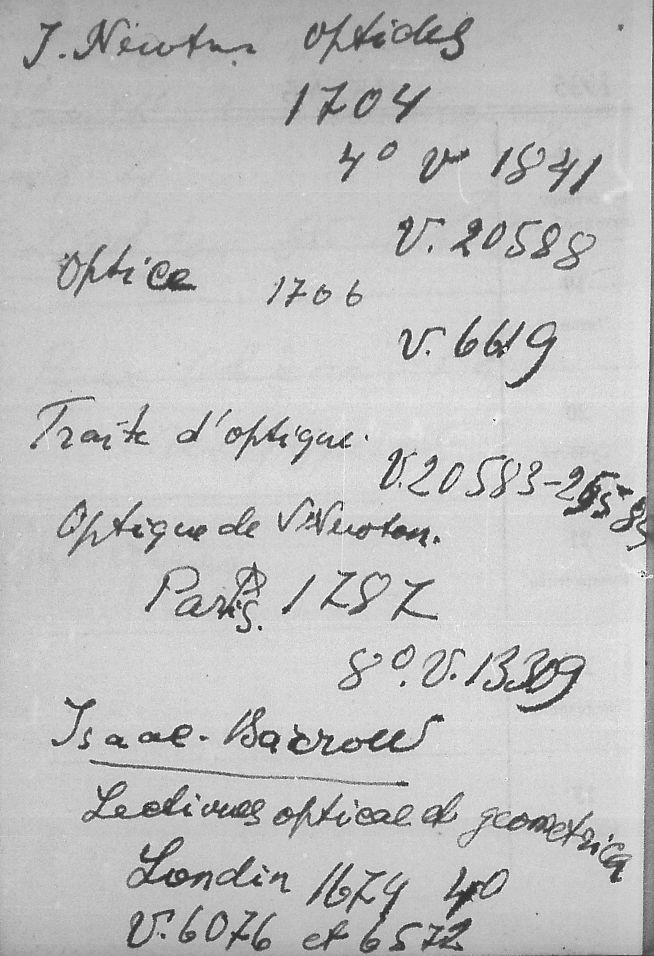 I. Newton Opticks
1704
4° V 1841
V. 20588
Optice 1706
V. 6619
Traité d'optique.
V. 20583-
Optique de Newton.
Paris. 1787
8°. V. 13309
Isaac-Barrow
Lectiones opticae et geometrica
Londin 1674 40
V. 6076 et 6572